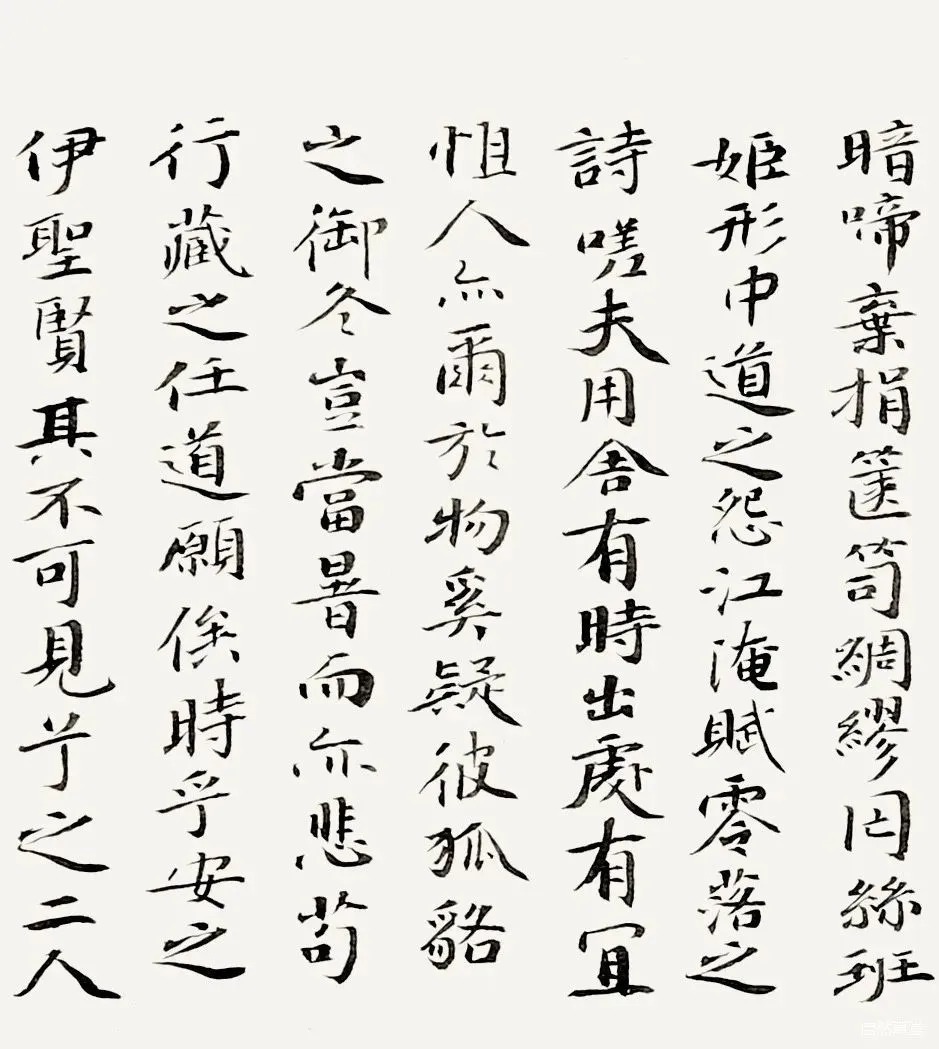 暗啼棄捐篋笥綢繆罔絲班
姬形中道之怨江淹賦零落之
詩嗟夫用舍有時出處有宜
怚人亦爾於物奚疑彼狐貉
之御冬豈當暑而亦悲苟
行藏之任道願俟時乎安之
伊聖賢其不可見兮之二人